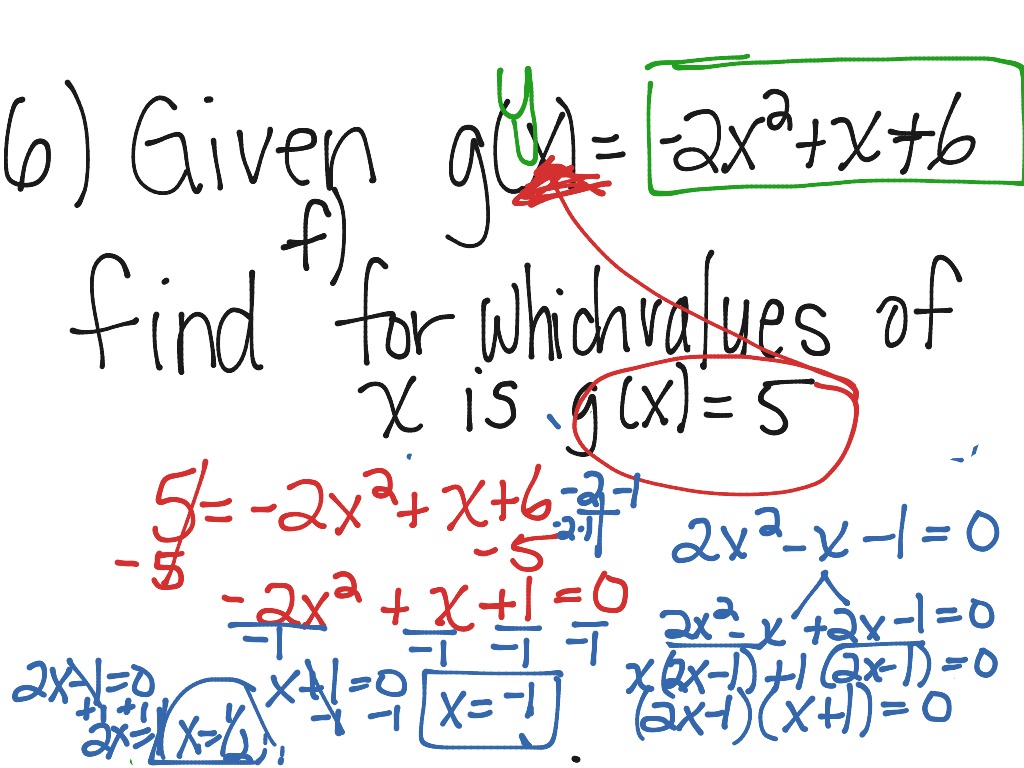 6) Given g(x) = -2x²+x+6
y
f)
find for which values of
x is g(x) = 5
5 = -2x² + x+6
-5 -5
-2 -1
-2x² + x + 1 = 0
-1 -1 -1 -1
2x² - x - 1 = 0
2x² - x + 2x - 1 = 0
x(2x-1) + 1(2x-1) = 0
(2x-1)(x+1) = 0
2x-1=0 x+1=0 x = -1
+1 +1 -1 -1
2x=1